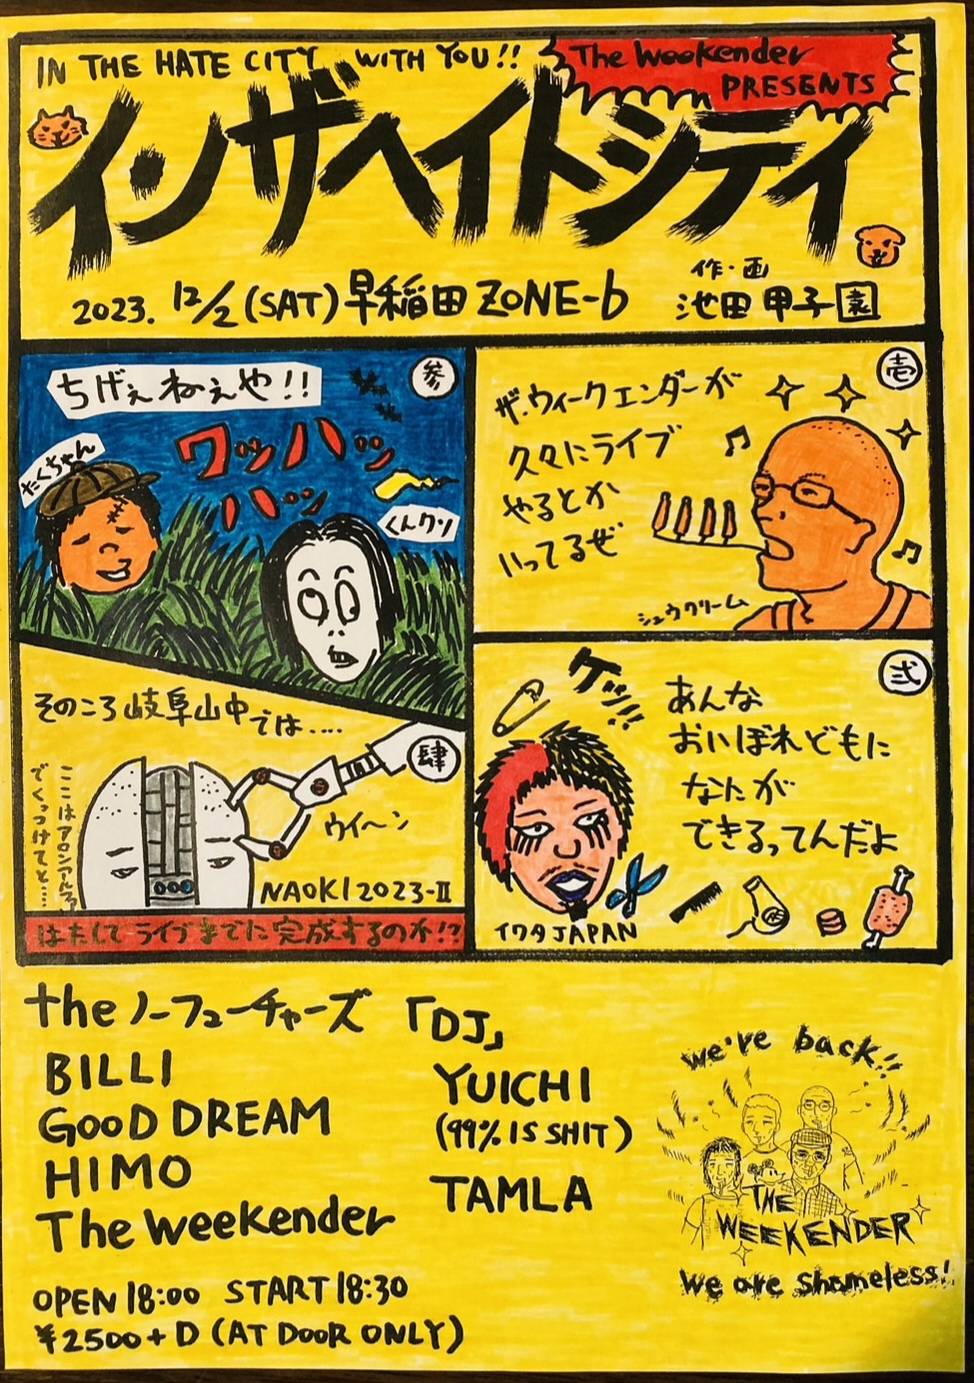 IN THE HATE CITY WITH YOU!!
The Weekender
PRESENTS
インザヘイトシティ
2023. 12/2 (SAT) 早稲田 ZONE-b
作・画
池田甲子園
壱
ザ・ウィークエンダーが
久々にライブ
やるとか
いってるぜ
シュウクリーム
弐
ケッ!!
あんな
おいぼれどもに
なにが
できるってんだよ
イワタJAPAN
参
ちげぇねぇや!!
たくちゃん
ワッハッ
ハッ
くんクン
肆
そのころ岐阜山中では....
ここはアロンアルファ
でくっつけてと....
ウイ〜ン
NAOKI 2023-II
はたしてライブまでに完成するのか!?
the ノーフューチャーズ
BILLI
GOOD DREAM
HIMO
The Weekender
「DJ」
YUICHI
(99% IS SHIT)
TAMLA
OPEN 18:00 START 18:30
¥2500+D (AT DOOR ONLY)
we're back!!
THE
WEEKENDER
We are shameless!